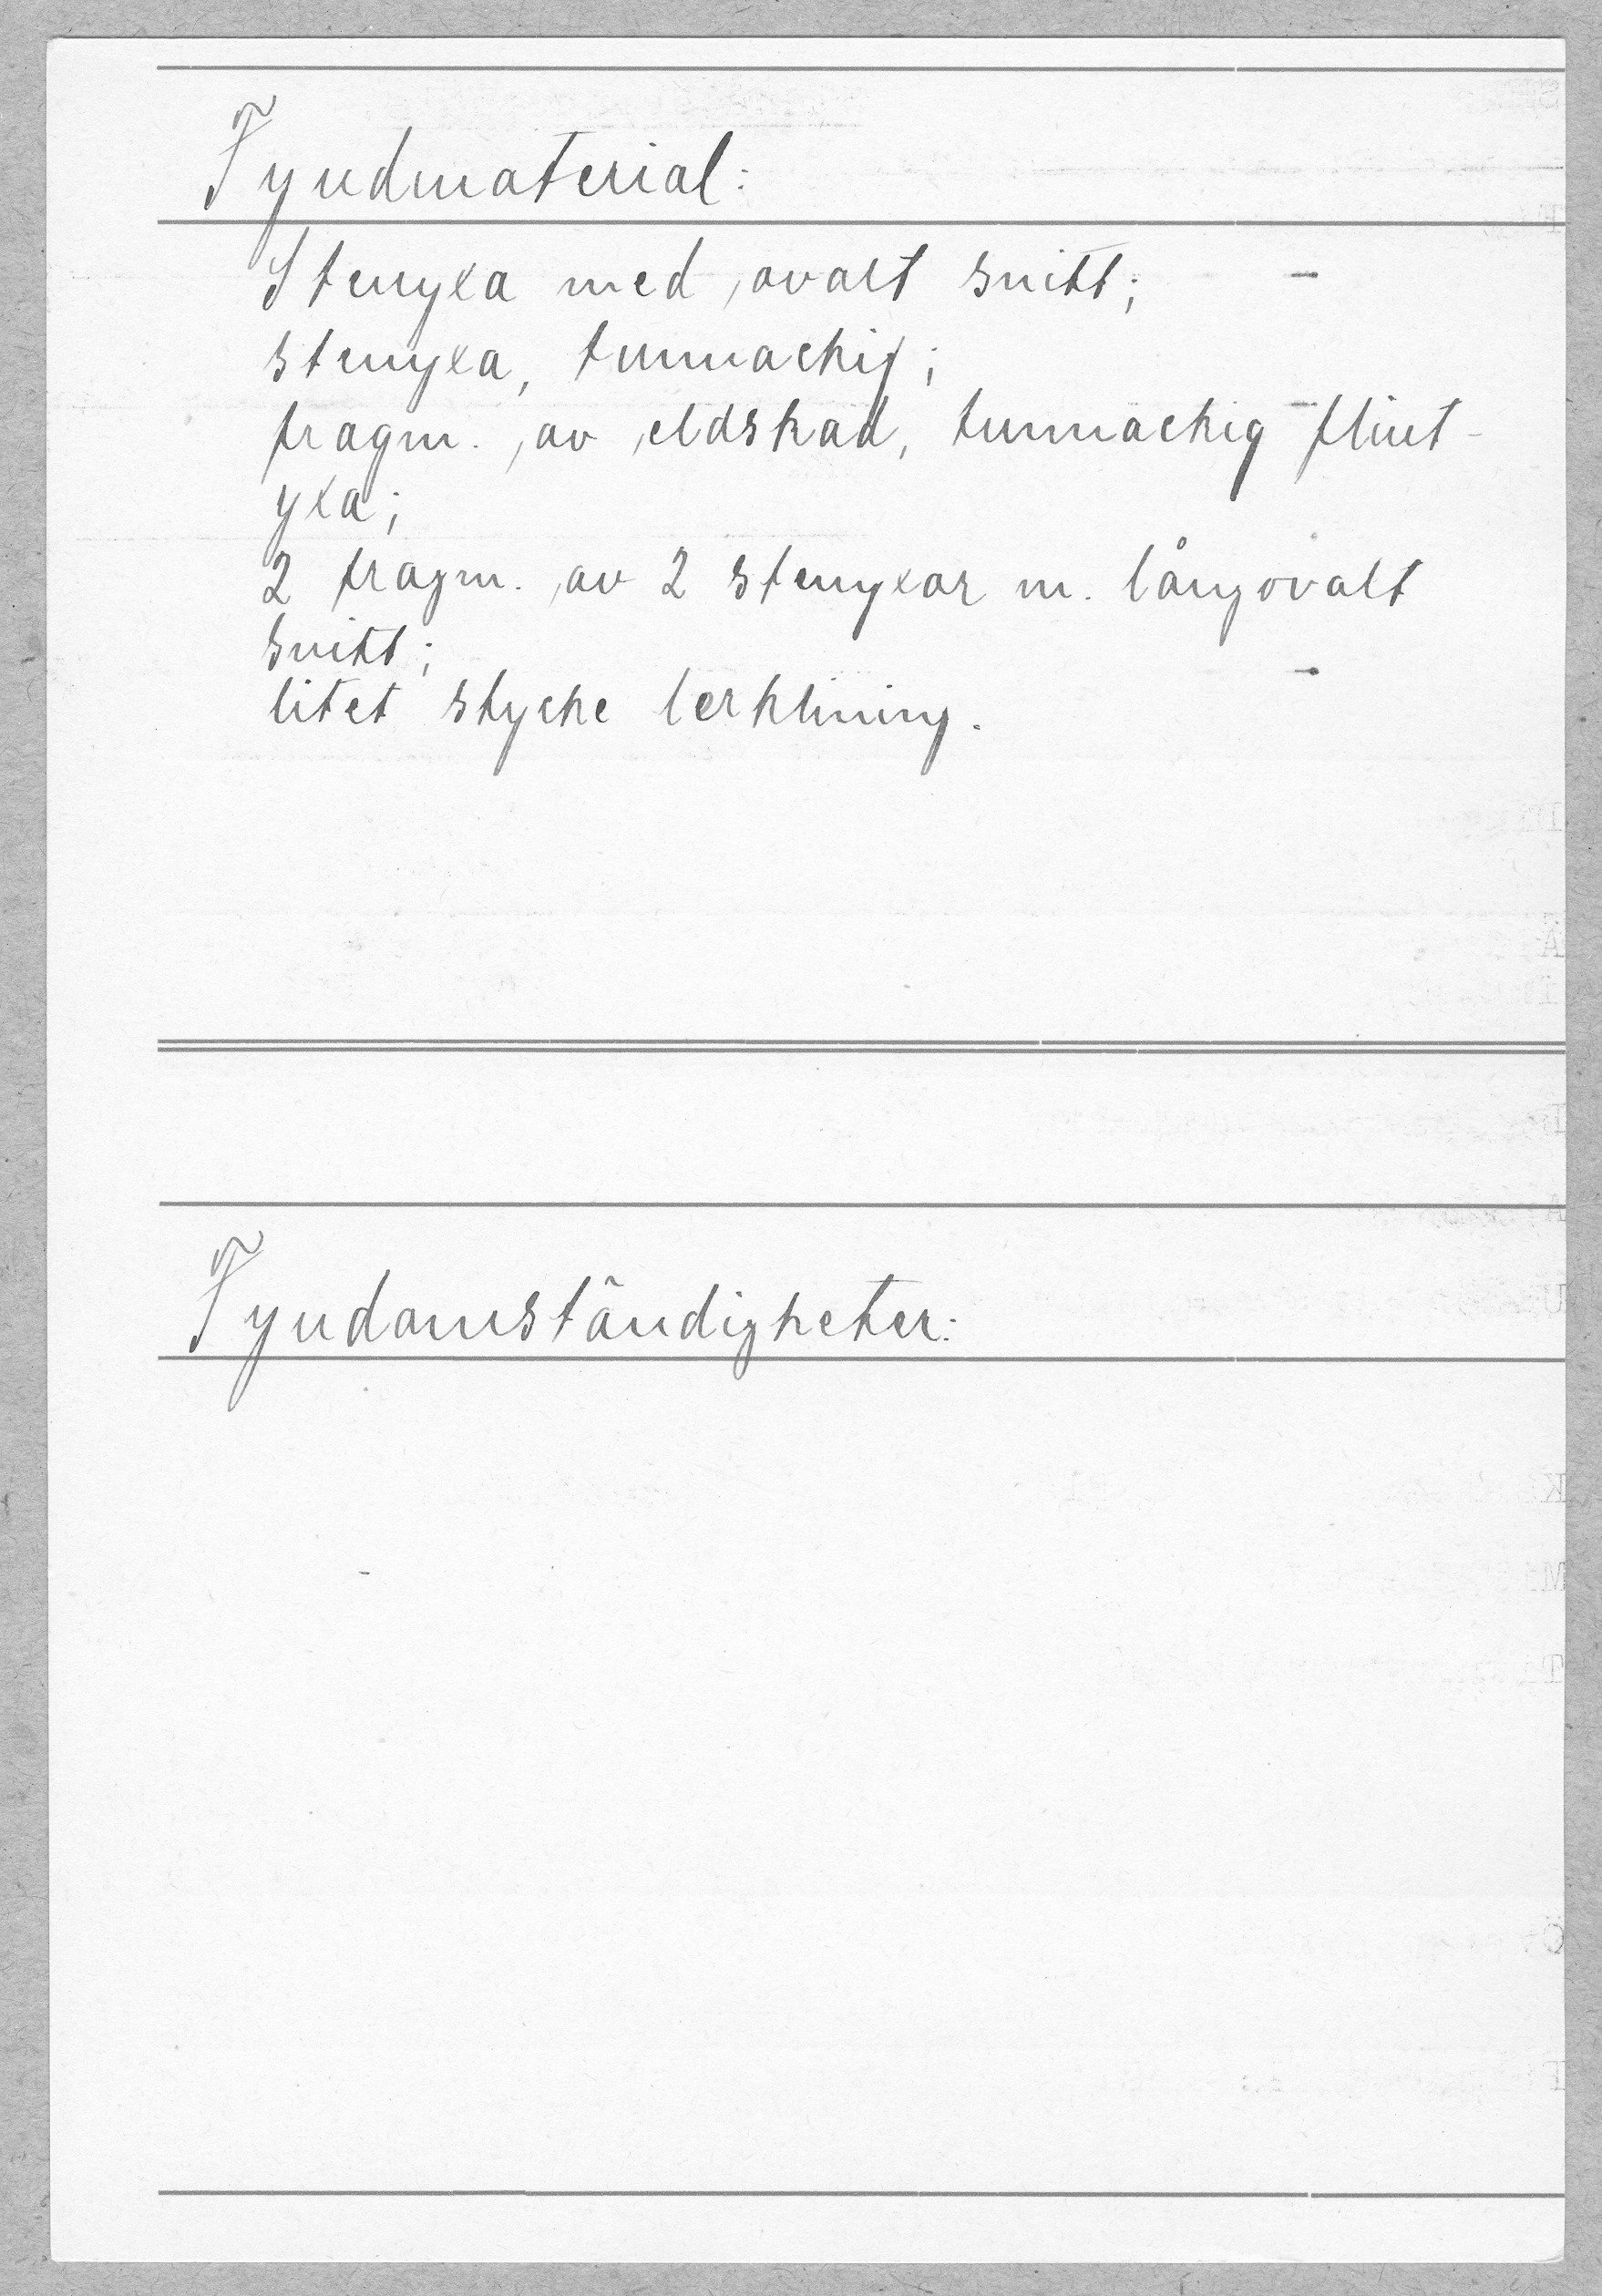 Fyndmaterial:
Stenyxa med ovalt snitt;
stenyxa, tunnackig;
fragm. av eldskad, tunnackig flint-
yxa;
2 fragm. av 2 stenyxor m. långovalt
snitt;
litet stycke lerklining.
Fyndomständigheter: